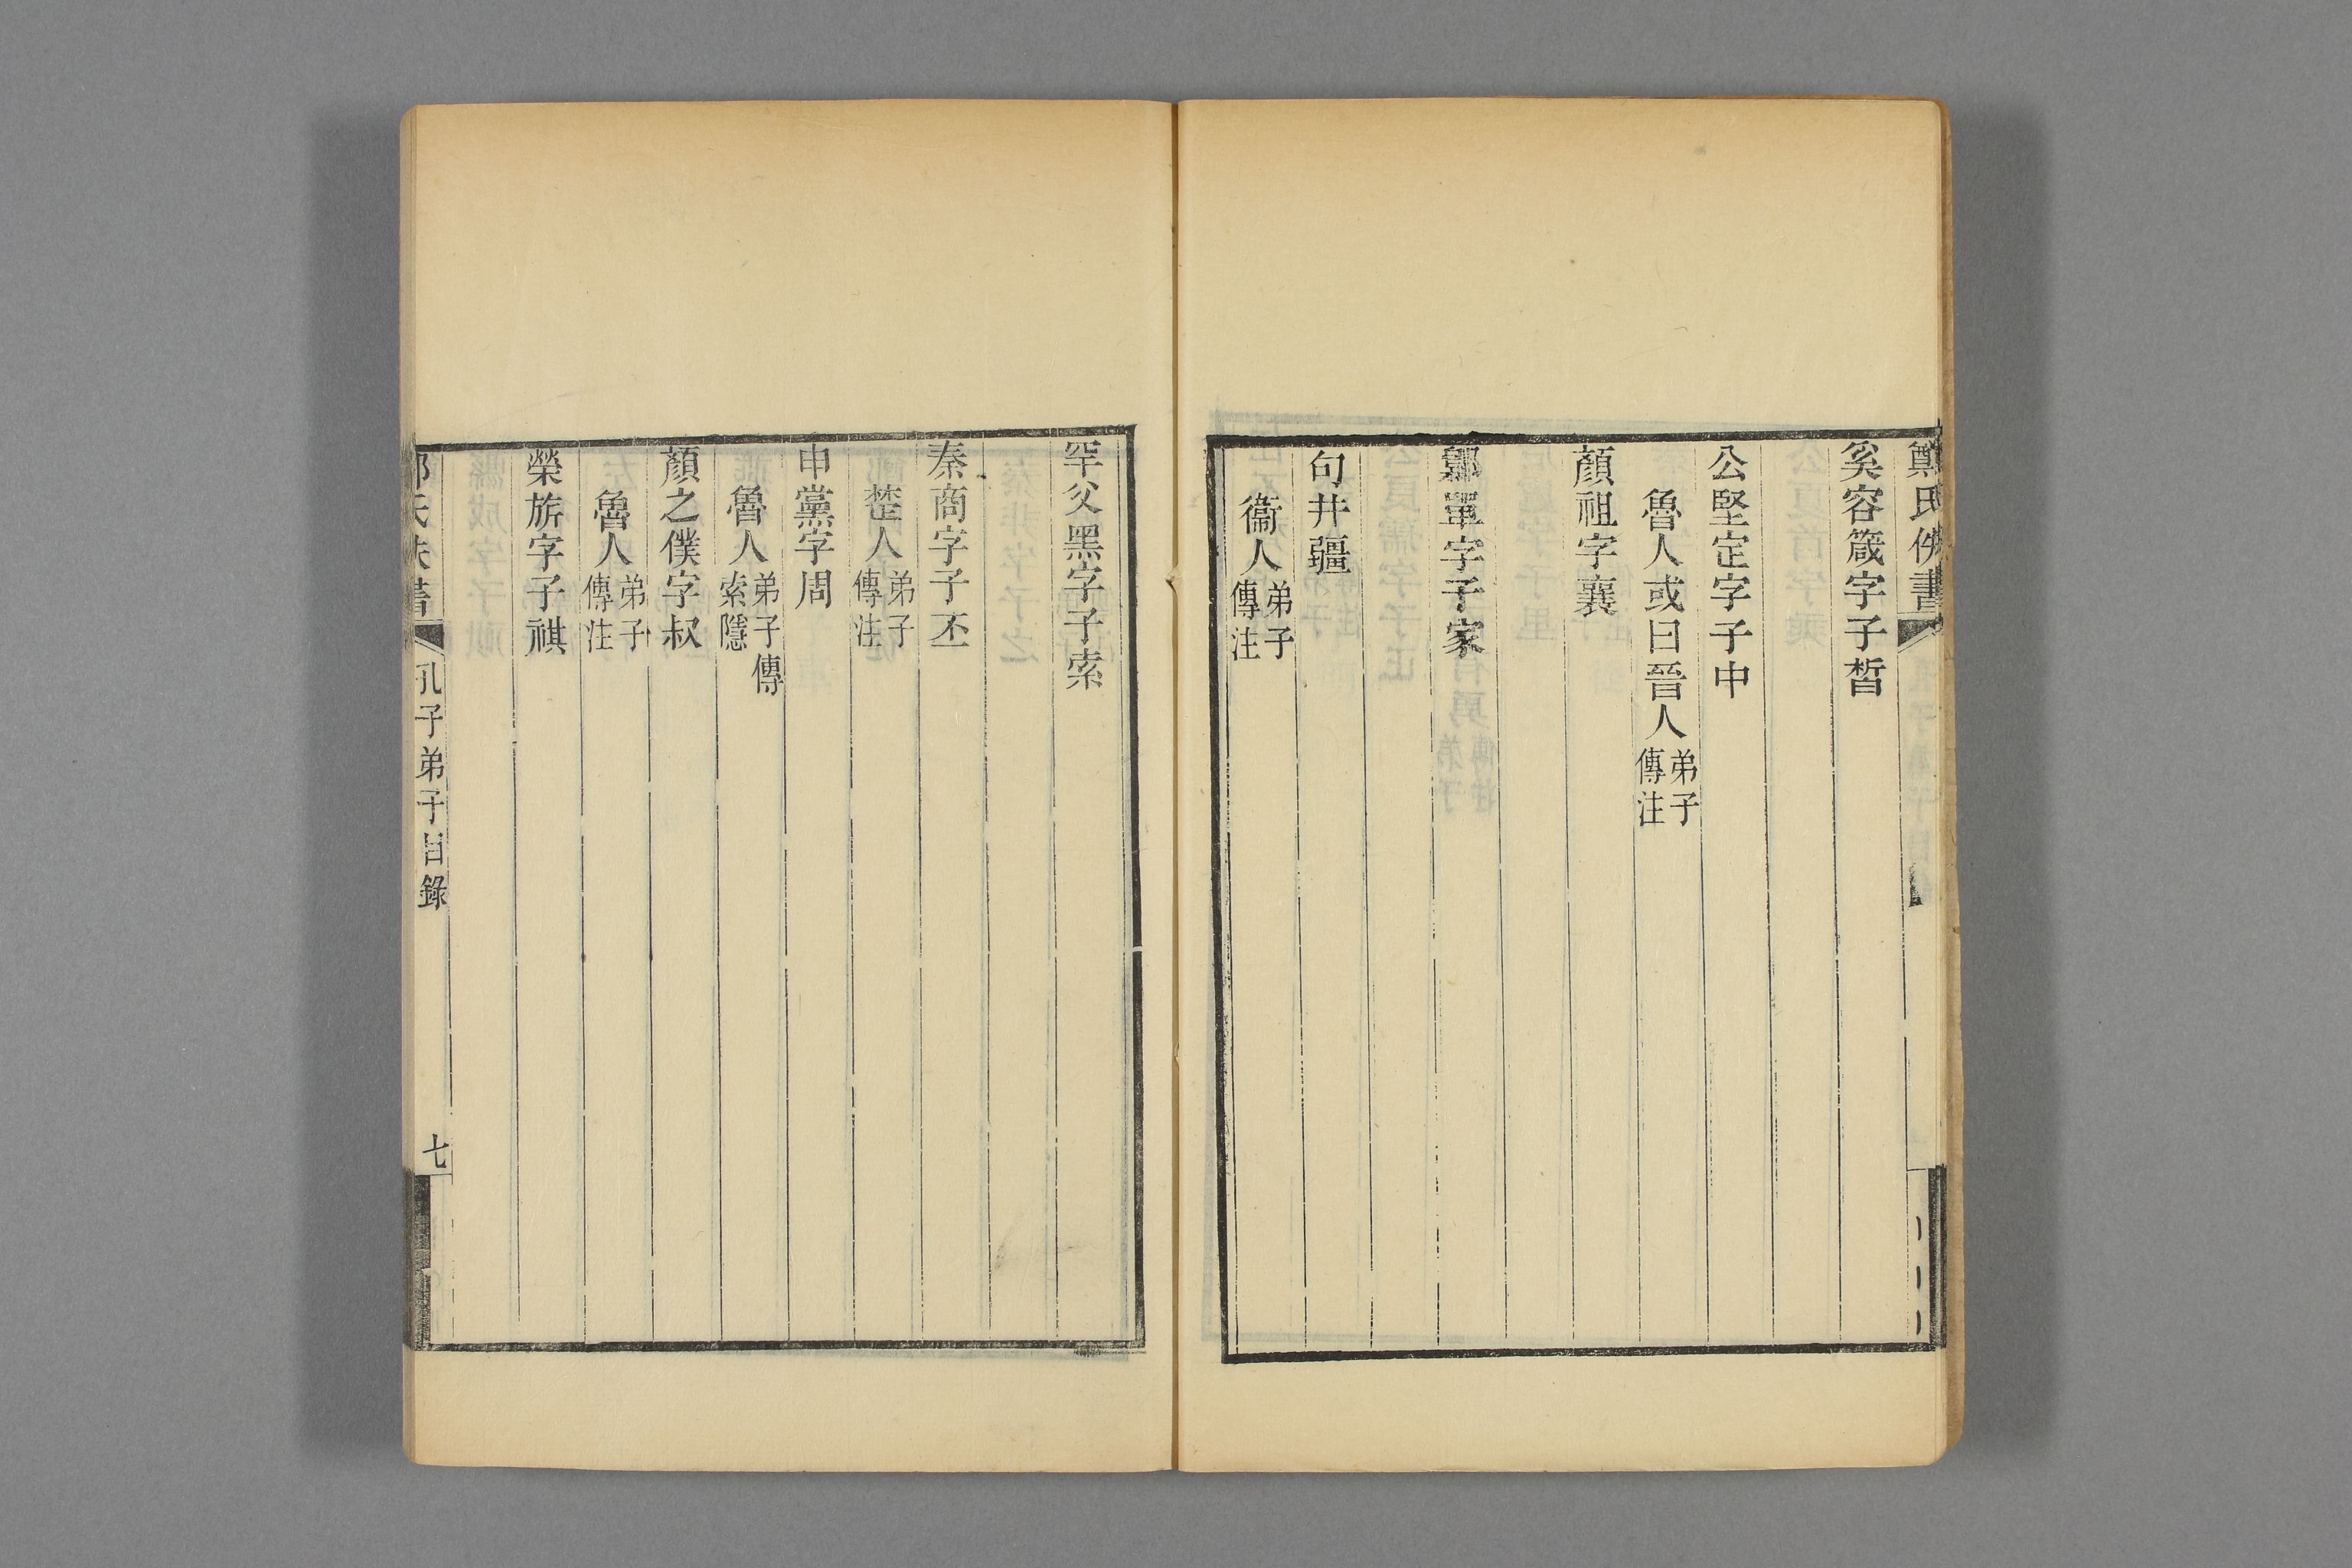 鄭氏佚書
奚容箴字子晳
公堅定字子中
魯人或曰晉人弟子傳注
顏祖字襄
鄡單字子家
句井疆
衞人弟子傳注
罕父黑字子索
秦商字子丕
楚人弟子傳注
申黨字周
魯人弟子傳索隱
顏之僕字叔
魯人弟子傳注
榮旂字子祺
鄭氏佚書 孔子弟子目錄 七